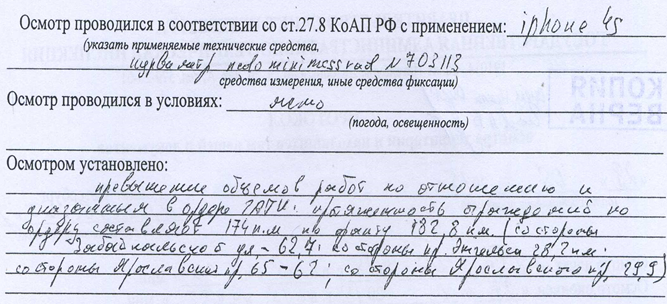 Осмотр проводился в соответствии со ст.27.8 КоАП РФ с применением: iphone 4s
(указать применяемые технические средства,
курвиметр nedo minimessrad N 703113
средства измерения, иные средства фиксации)
Осмотр проводился в условиях: ясно
(погода, освещенность)
КОПИЯ
ВЕРНА
Осмотром установлено:
превышение объемов работ по отношению к
указанным в ордере ГАТИ: протяженность ограждений по
ордеру составляет 174 п.м по факту 182,8 п.м. (со стороны
Забайкальской ул. - 62,7; со стороны пр. Энгельса 28,2 п.м.
со стороны Ярославский пр. 65 - 62; со стороны Ярославского пр. 29,9)